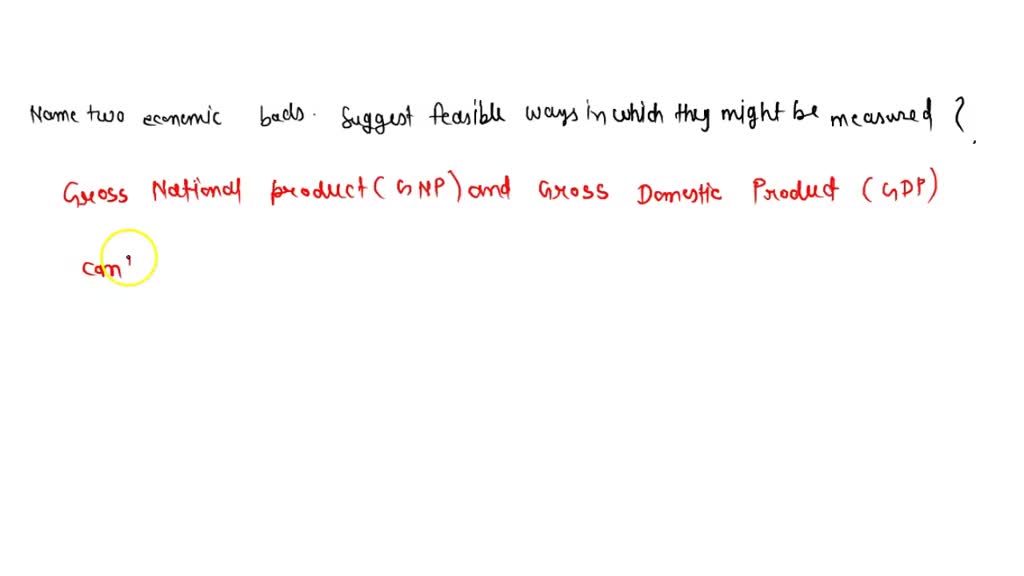 Name two economic bads. Suggest feasible ways in which they might be measured ?
Gross National product (GNP) and Gross Domestic Product (GDP)
can'